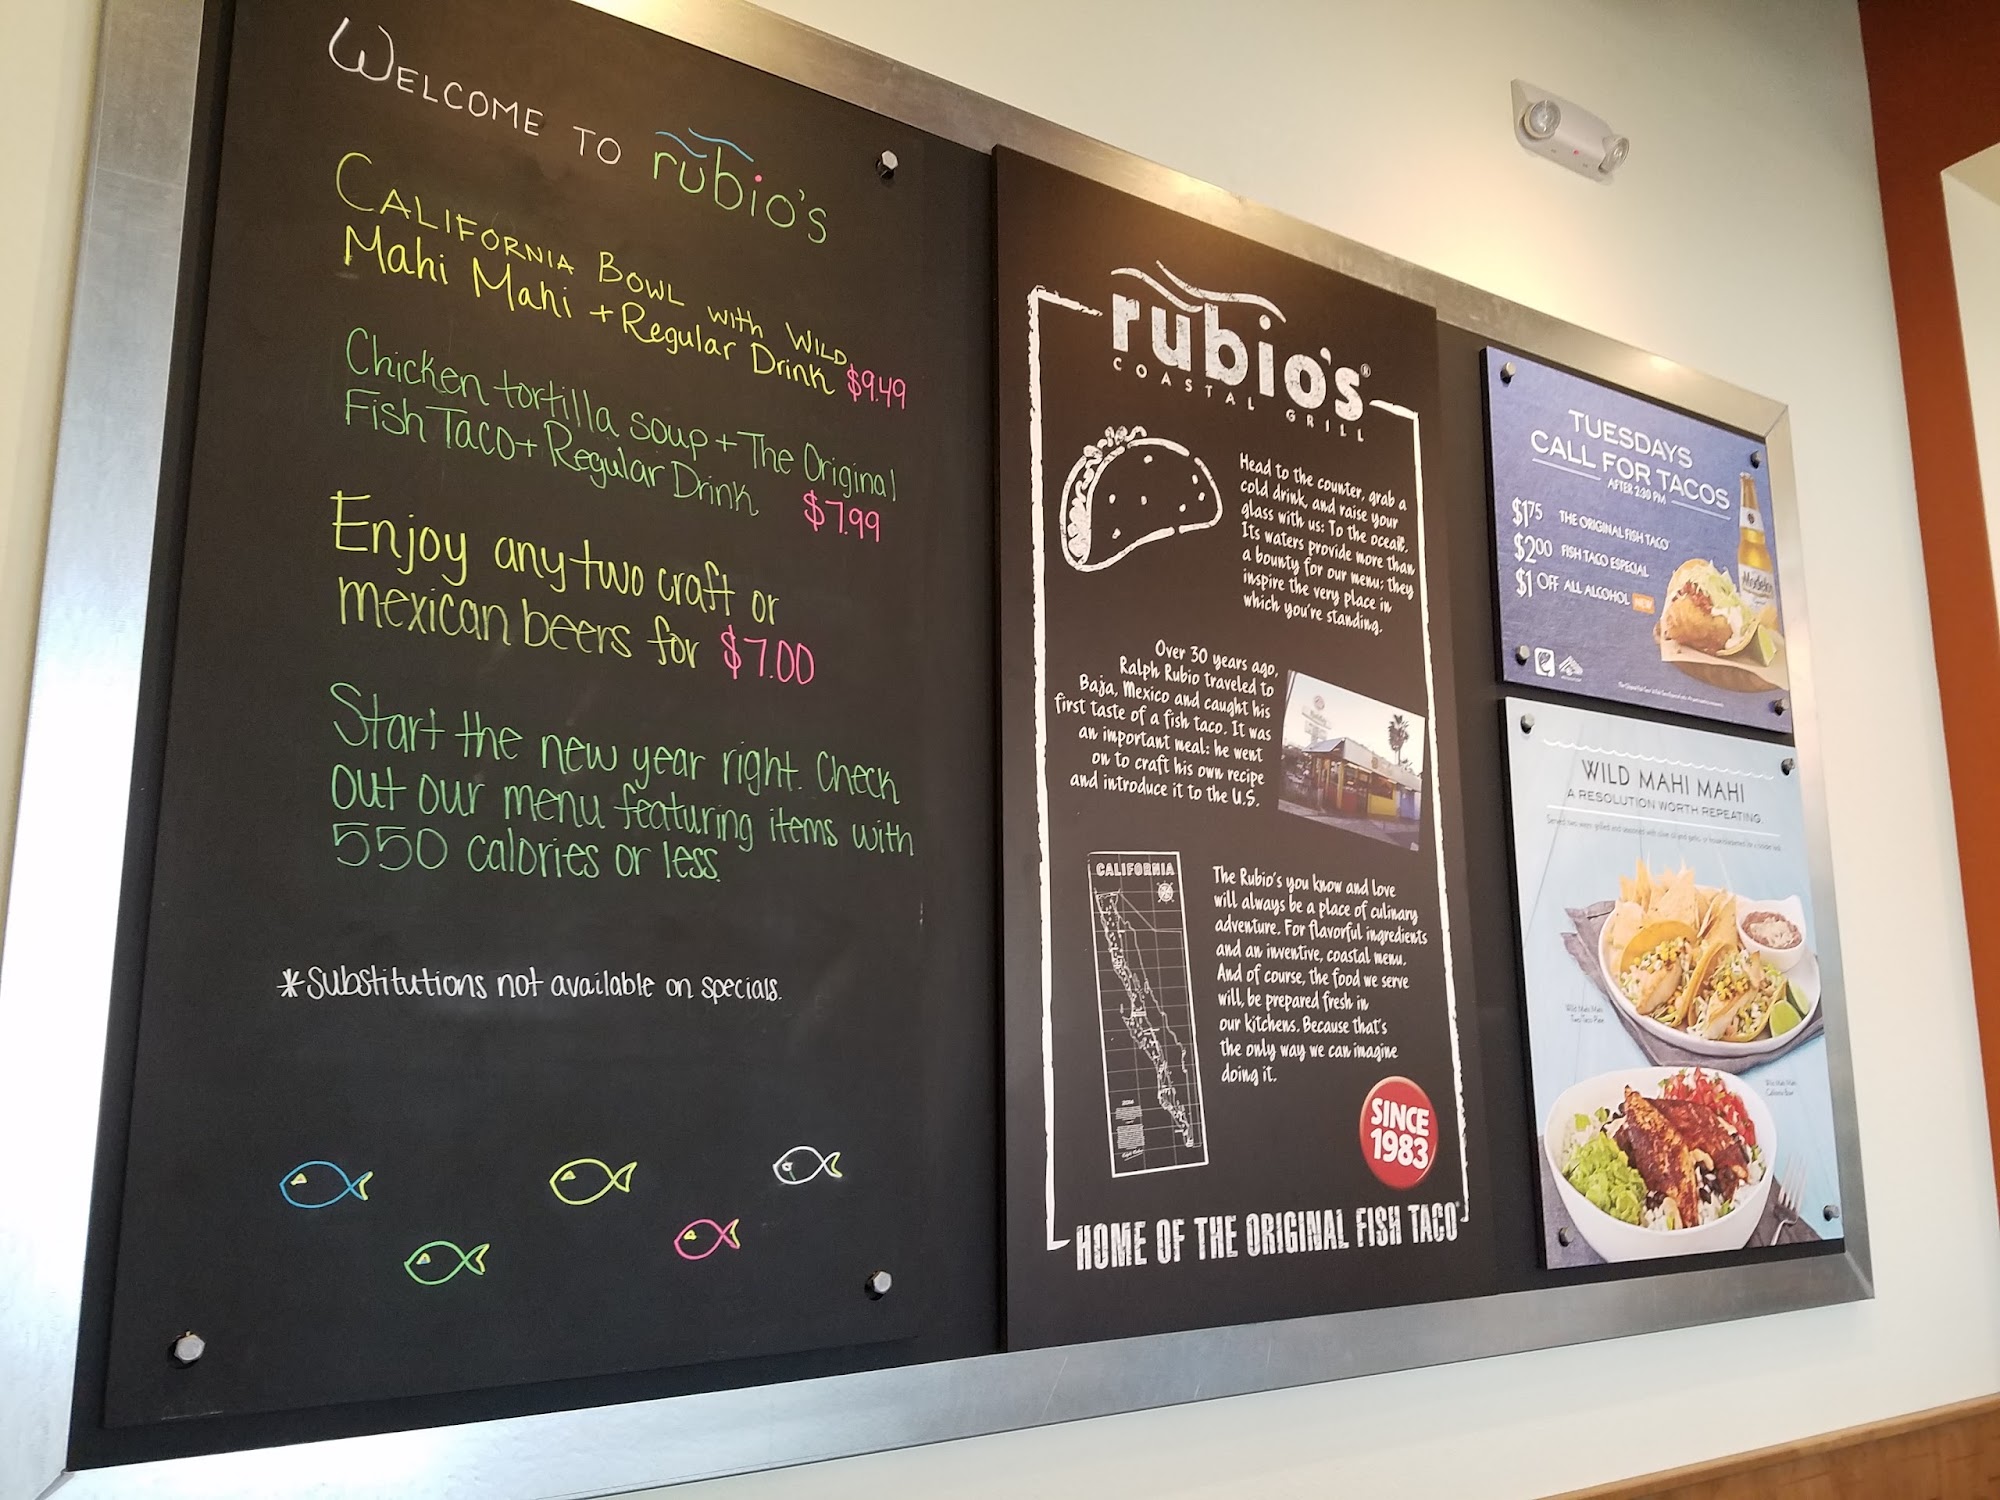 WELCOME TO rubio's
CALIFORNIA BOWL WITH WILD
Mahi Mahi + Regular Drink $9.49
Chicken tortilla soup + The Original
Fish Taco + Regular Drink $7.99
Enjoy any two craft or
mexican beers for $7.00
Start the new year right. Check
out our menu featuring items with
550 calories or less.
*Substitutions not available on specials.
rubio's®
COASTAL GRILL
Head to the counter, grab a
cold drink, and raise your
glass with us: To the ocean.
Its waters provide more than
a bounty for our menu; they
inspire the very place in
which you're standing.
Over 30 years ago,
Ralph Rubio traveled to
Baja, Mexico and caught his
first taste of a fish taco. It was
an important meal: he went
on to craft his own recipe
and introduce it to the U.S.
CALIFORNIA
The Rubio's you know and love
will always be a place of culinary
adventure. For flavorful ingredients
and an inventive, coastal menu.
And of course, the food we serve
will, be prepared fresh in
our kitchens. Because that's
the only way we can imagine
doing it.
SINCE
1983
HOME OF THE ORIGINAL FISH TACO®
TUESDAYS
CALL FOR TACOS
AFTER 2:30 PM
$1.75 THE ORIGINAL FISH TACO®
$2.00 FISH TACO ESPECIAL
$1 OFF ALL ALCOHOL NEW
Modelo
WILD MAHI MAHI
A RESOLUTION WORTH REPEATING
Wild Mahi Mahi
Two Taco Plate
Wild Mahi Mahi
California Bowl